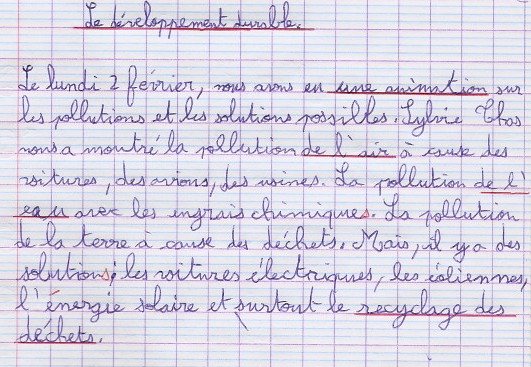 Le développement durable.
Le lundi 2 février, nous avons eu une animation sur
les pollutions et les solutions possibles. Sylvie Thas
nous a montré la pollution de l'air à cause des
voitures, des avions, des usines. La pollution de l'
eau avec les engrais chimiques. La pollution
de la terre à cause des déchets. Mais, il y a des
solutions; les voitures électriques, les éoliennes,
l'énergie solaire et surtout le recyclage des
déchets.